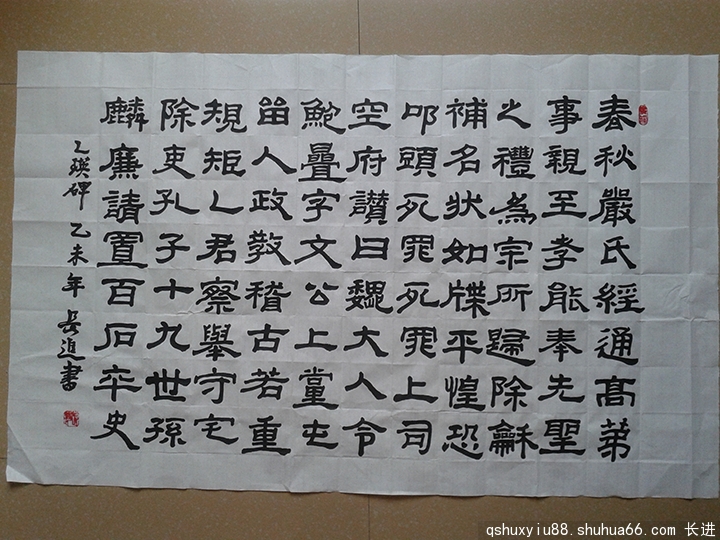 春秋嚴氏經通高第
事親至孝能奉先聖
之禮為宗所歸除龢
補名狀如牒平惶恐
叩頭死罪死罪上司
空府讃曰魏大人令
鮑疊字文公上黨屯
畄人政教稽古若重
規矩乙君察舉守宅
除吏孔子十九世孫
麟廉請置百石卒史
乙瑛碑 乙未年 長進書
qshuxyiu88.shuhua66.com 长进